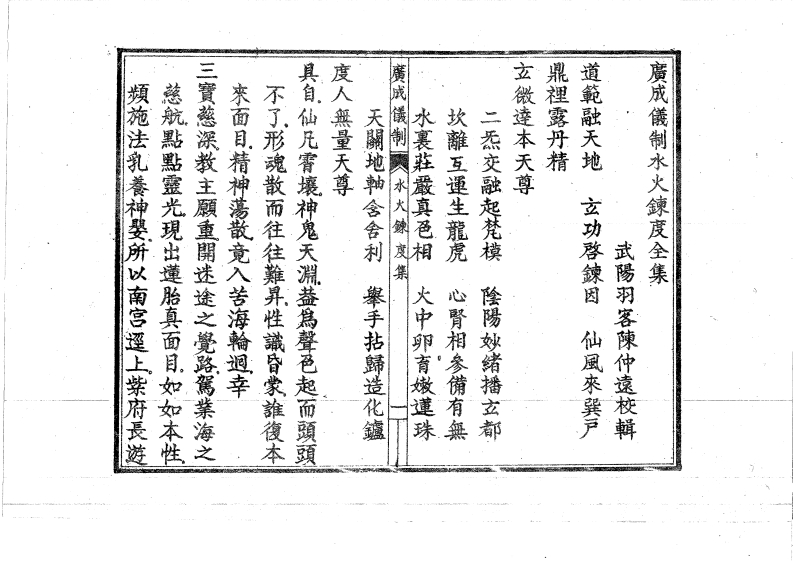 廣成儀制水火鍊度全集
武陽羽客陳仲遠校輯
道範融天地　玄功啓鍊因　仙風來巽戶
鼎裡露丹精
玄微達本天尊
二炁交融起梵模　陰陽妙緒播玄都
坎離互運生龍虎　心腎相參備有無
水裏莊嚴真色相　火中卵育嫩蓮珠
廣成儀制　水火鍊度集　一
天關地軸含舍利　舉手拈歸造化鑪
度人無量天尊
具自仙凡霄壤神鬼天淵葢為聲色起而頭頭
不了形魂散而往往難昇性識昏蒙誰復本
來面目精神蕩散竟入苦海輪迴幸
三寶慈深教主願重開迷途之覺路駕業海之
慈航點點靈光現出蓮胎真面目如如本性
頻施法乳養神嬰所以南宮逕上紫府長遊